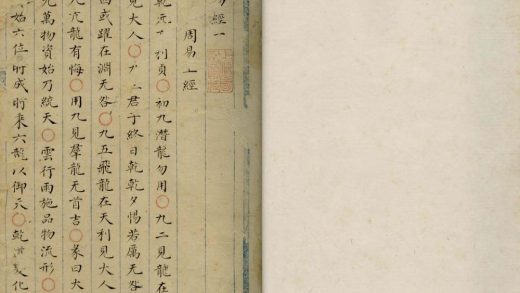 易經一
周易上經
乾元利貞○初九潛龍勿用○九二見龍在
見大人○君子終日乾乾夕惕若厲无咎
四或躍在淵无咎○九五飛龍在天利見大人
九亢龍有悔○用九見羣龍无首吉○彖曰大
元萬物資始乃統天○雲行雨施品物流形○
始六位时成时乘六龍以御天○乾變化